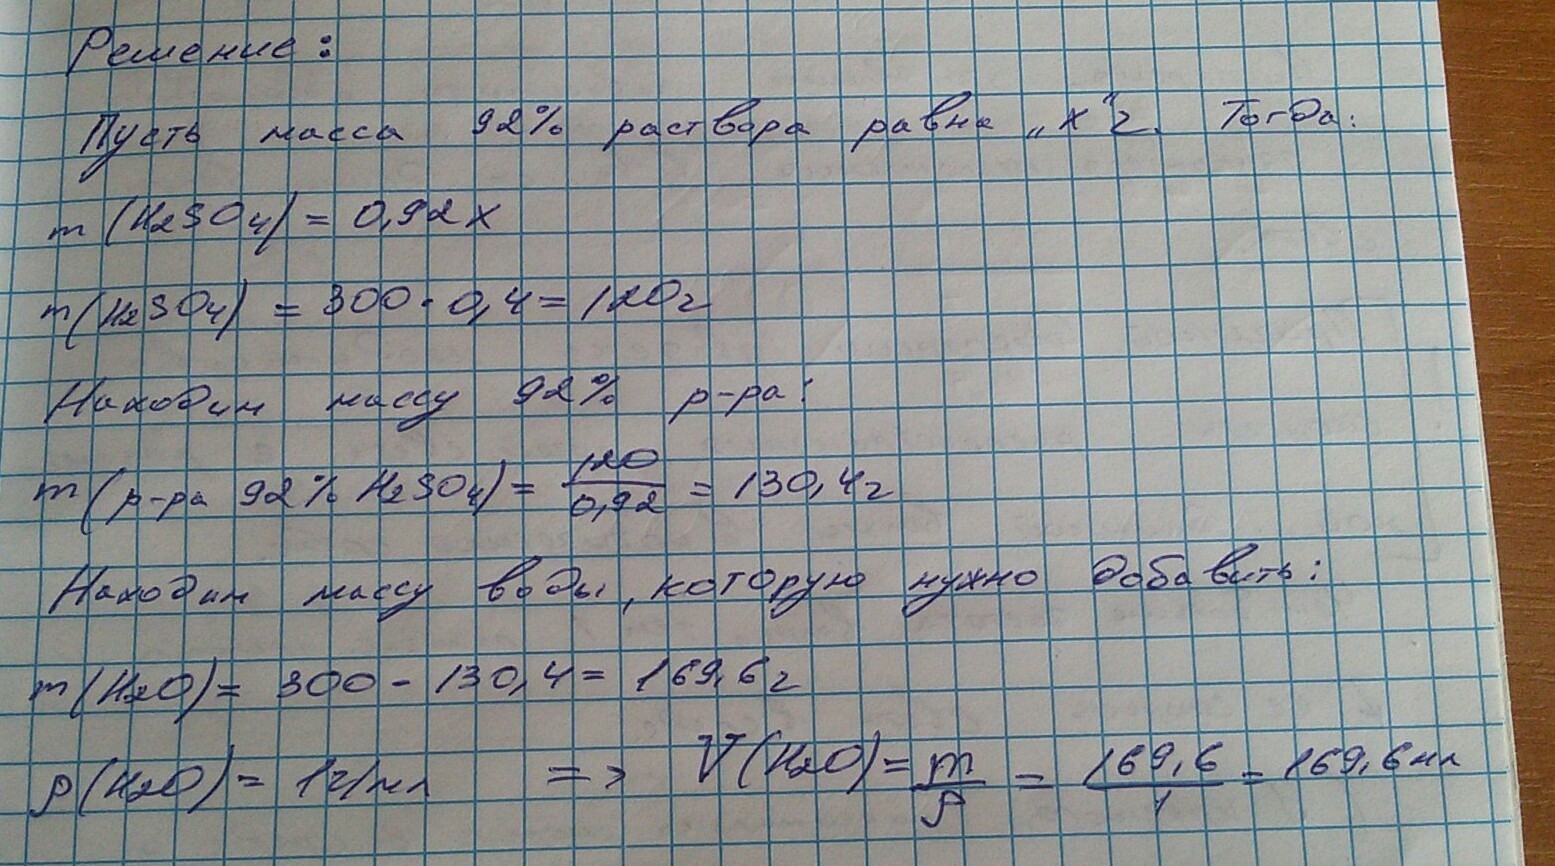 Решение:
Пусть масса 92% раствора равна „x" г. Тогда:
m (H2SO4) = 0,92 x
m (H2SO4) = 300 · 0,4 = 120г
Находим массу 92% р-ра:
m (р-ра 92% H2SO4) = 120/0,92 = 130,4г
Находим массу воды, которую нужно добавить:
m (H2O) = 300 - 130,4 = 169,6г
ρ (H2O) = 1г/мл => V (H2O) = m/ρ = 169,6/1 = 169,6 мл